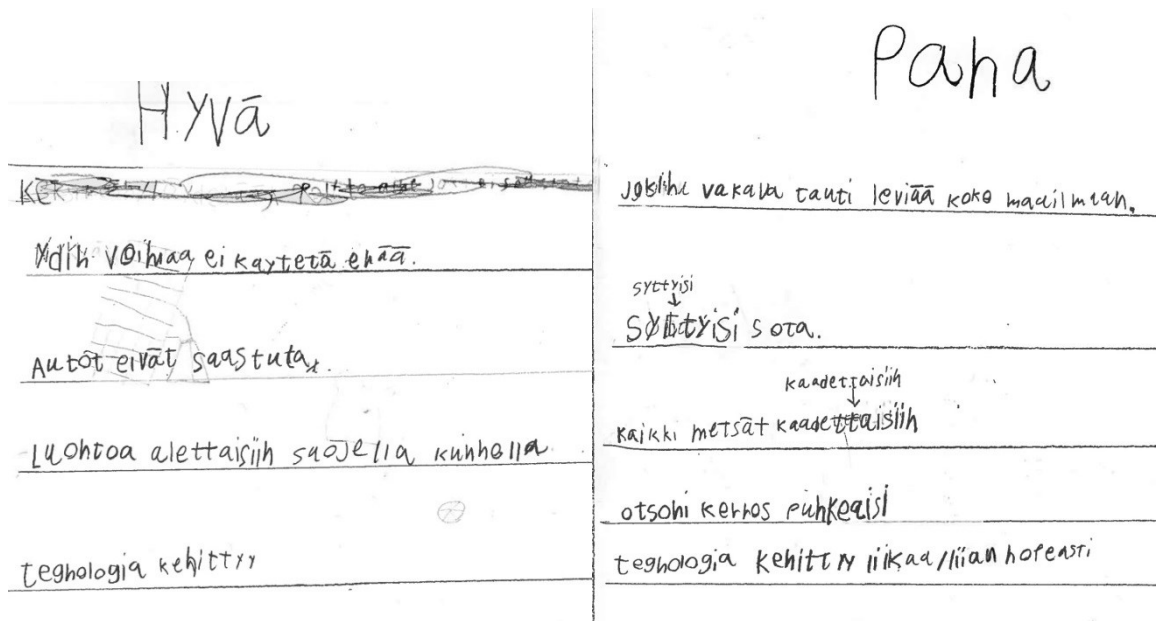 Hyvä
Ydin voimaa ei käytetä enää.
Autot eivät saastuta.
Luontoa alettaisiin suojella kunnolla
teghologia kehittyy
Paha
Jokin vakava tauti leviää koko maailmaan.
syttyisi
Syttyisi sota.
kaadettaisiin
kaikki metsät kaadettaisiin
otsoni kerros puhkeaisi
teghologia kehittyy liikaa/liian nopeasti